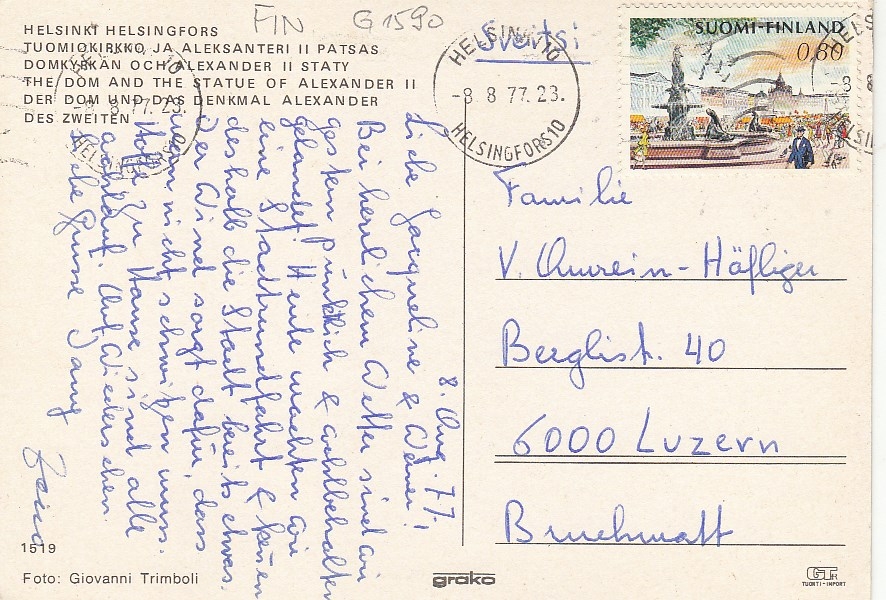 HELSINKI HELSINGFORS
TUOMIOKIRKKO JA ALEKSANTERI II PATSAS
DOMKYSKAN OCH ALEXANDER II STATY
THE DOM AND THE STATUE OF ALEXANDER II
DER DOM UND DAS DENKMAL ALEXANDER
DES ZWEITEN
FIN G1590
Sveitsi
HELSINKI 10
-8.8.77.23.
HELSINGFORS 10
SUOMI-FINLAND
0,80
8. Aug. 77.
Liebe Jacqueline & Werner!
Bei herrlichem Wetter sind wir
gestern pünktlich & wohlbehalten
gelandet. Heute machten wir
eine Stadtrundfahrt & kennen
deshalb die Stadt bereits etwas.
Der Wind sorgt dafür, dass
nicht schwitzen muss.
zu Hause sind alle
Auf Wiedersehen.
Liebe Grüsse
Familie
V. Amrein-Häfliger
Berglist. 40
6000 Luzern
Bruchmatt
1519
Foto: Giovanni Trimboli
grako
TUONTI-IMPORT